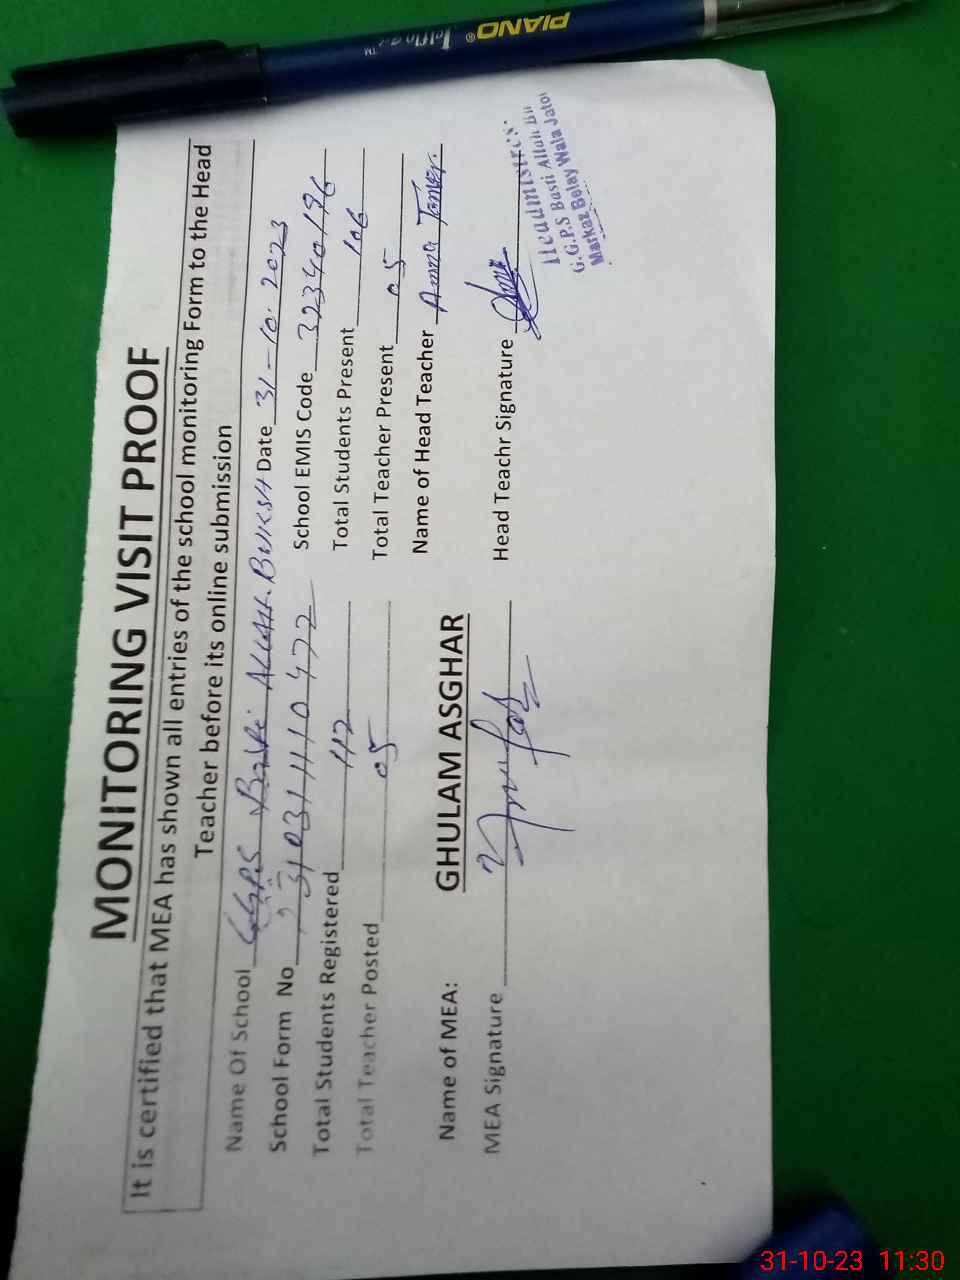 PIANO®
MONITORING VISIT PROOF
It is certified that MEA has shown all entries of the school monitoring Form to the Head
Teacher before its online submission
Name Of School GGPS Basti ALLAH BUKSH Date 31-10-2023
School Form No 231031110472 School EMIS Code 32340196
Total Students Registered 112 Total Students Present 106
Total Teacher Posted 05 Total Teacher Present 05
Name of Head Teacher Amna
Name of MEA: GHULAM ASGHAR
MEA Signature Head Teachr Signature
Headmistress
G.G.P.S Basti Allah
Markaz Belay Wala Jatoi
31-10-23 11:30